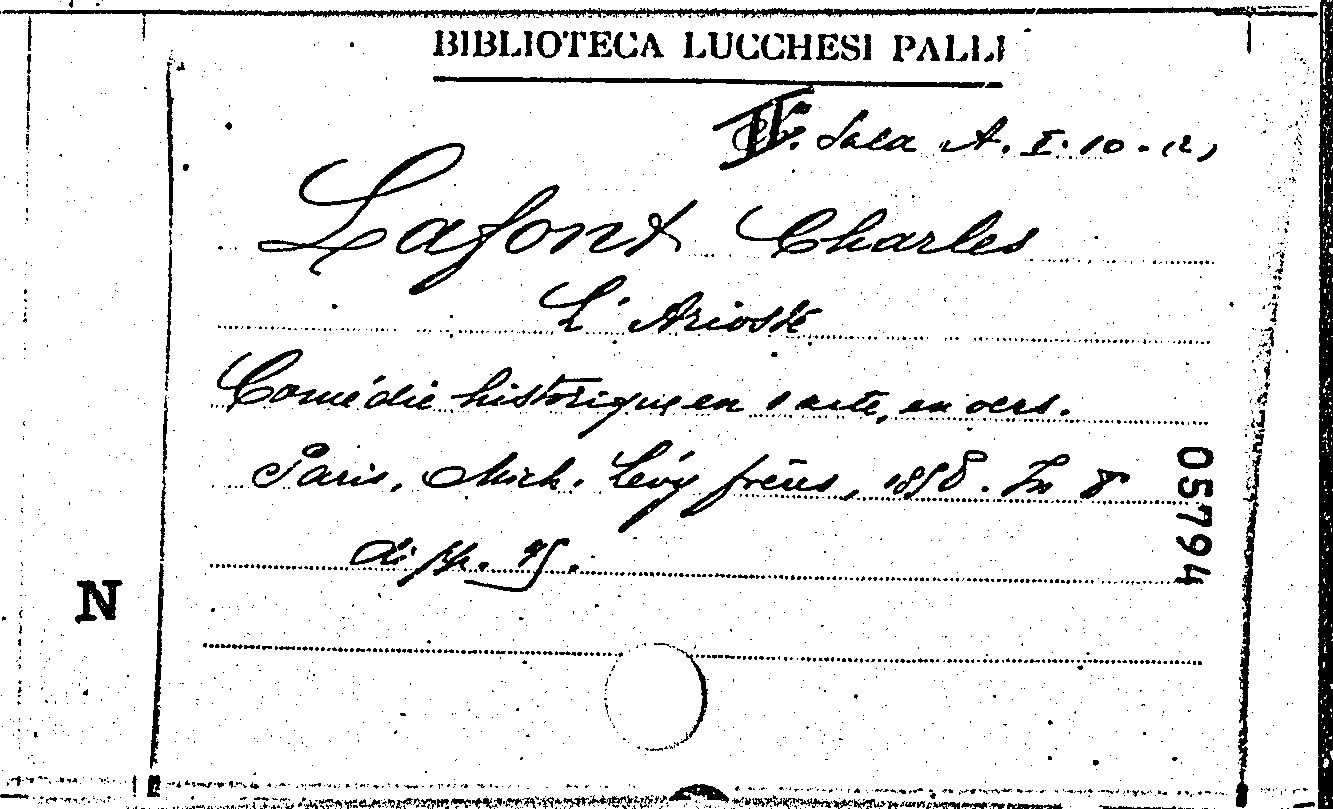 BIBLIOTECA LUCCHESI PALLI
Sala A. I. 10. (2)
Lafont Charles
L'Arioste
Comédie historique en 1 acte, en vers.
Paris, Mich. Lévy frères, 1858. In 8°
di pp.
05794
N